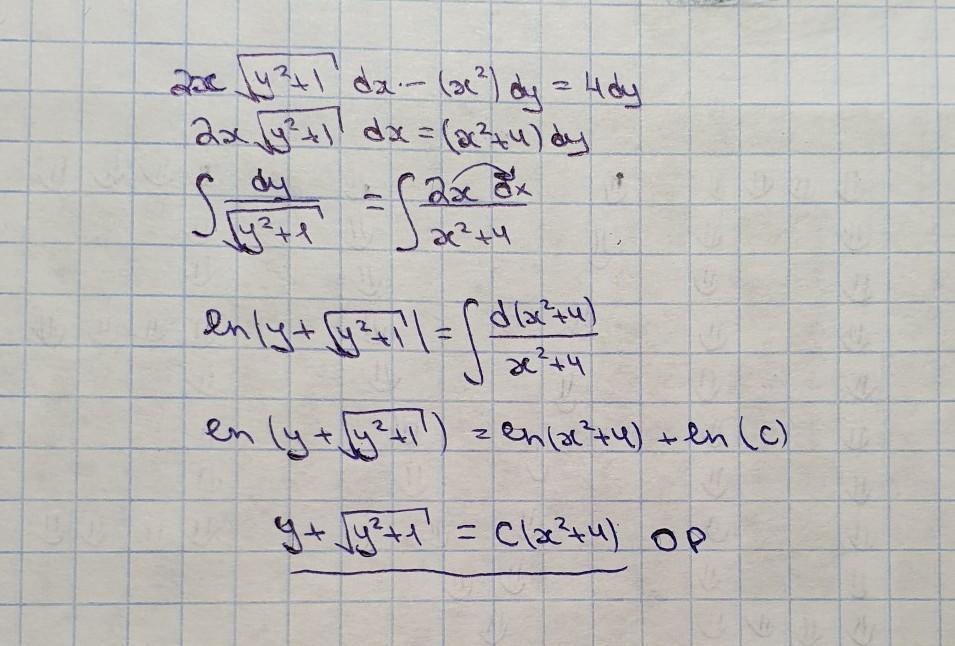 2x √(y²+1) dx - (x²) dy = 4dy
2x √(y²+1) dx = (x²+4) dy
∫ dy/√(y²+1) = ∫ 2x dx/(x²+4)
ln|y + √(y²+1)| = ∫ d(x²+4)/(x²+4)
ln (y + √(y²+1)) = ln(x²+4) + ln (C)
y + √(y²+1) = C(x²+4) ОР